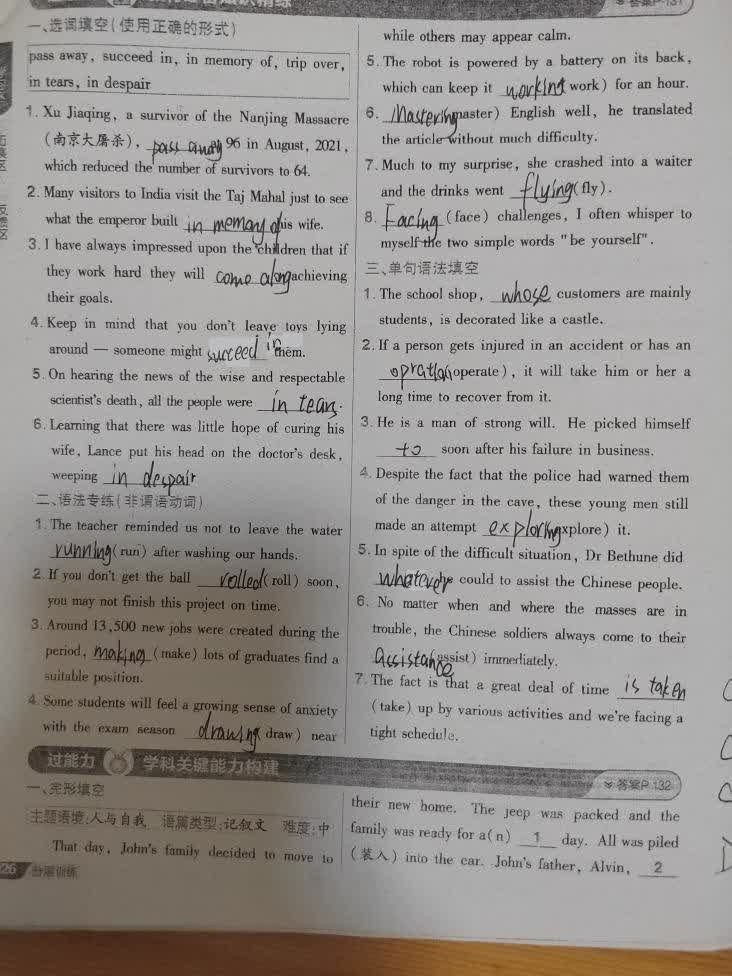 答案P.131
一、选词填空(使用正确的形式)
pass away, succeed in, in memory of, trip over,
in tears, in despair
1. Xu Jiaqing, a survivor of the Nanjing Massacre
(南京大屠杀), pass away 96 in August, 2021,
which reduced the number of survivors to 64.
2. Many visitors to India visit the Taj Mahal just to see
what the emperor built in memory of his wife.
3. I have always impressed upon the children that if
they work hard they will come along achieving
their goals.
4. Keep in mind that you don't leave toys lying
around — someone might succeed in them.
5. On hearing the news of the wise and respectable
scientist's death, all the people were in tears.
6. Learning that there was little hope of curing his
wife, Lance put his head on the doctor's desk,
weeping in despair
二、语法专练(非谓语动词)
1. The teacher reminded us not to leave the water
running (run) after washing our hands.
2. If you don't get the ball rolled (roll) soon,
you may not finish this project on time.
3. Around 13,500 new jobs were created during the
period, making (make) lots of graduates find a
suitable position.
4. Some students will feel a growing sense of anxiety
with the exam season drawing draw) near
while others may appear calm.
5. The robot is powered by a battery on its back,
which can keep it working work) for an hour.
6. Mastering master) English well, he translated
the article without much difficulty.
7. Much to my surprise, she crashed into a waiter
and the drinks went flying (fly).
8. Facing (face) challenges, I often whisper to
myself the two simple words "be yourself".
三、单句语法填空
1. The school shop, whose customers are mainly
students, is decorated like a castle.
2. If a person gets injured in an accident or has an
opration (operate), it will take him or her a
long time to recover from it.
3. He is a man of strong will. He picked himself
to soon after his failure in business.
4. Despite the fact that the police had warned them
of the danger in the cave, these young men still
made an attempt exploring explore) it.
5. In spite of the difficult situation, Dr Bethune did
whatever he could to assist the Chinese people.
6. No matter when and where the masses are in
trouble, the Chinese soldiers always come to their
Assistance assist) immediately.
7. The fact is that a great deal of time is taken
(take) up by various activities and we're facing a
tight schedule.
过能力 学科关键能力构建
答案P.132
一、完形填空
主题语境:人与自我 语篇类型:记叙文 难度:中
That day, John's family decided to move to
their new home. The jeep was packed and the
family was ready for a(n) 1 day. All was piled
(装入) into the car. John's father, Alvin, 2
26 分层训练